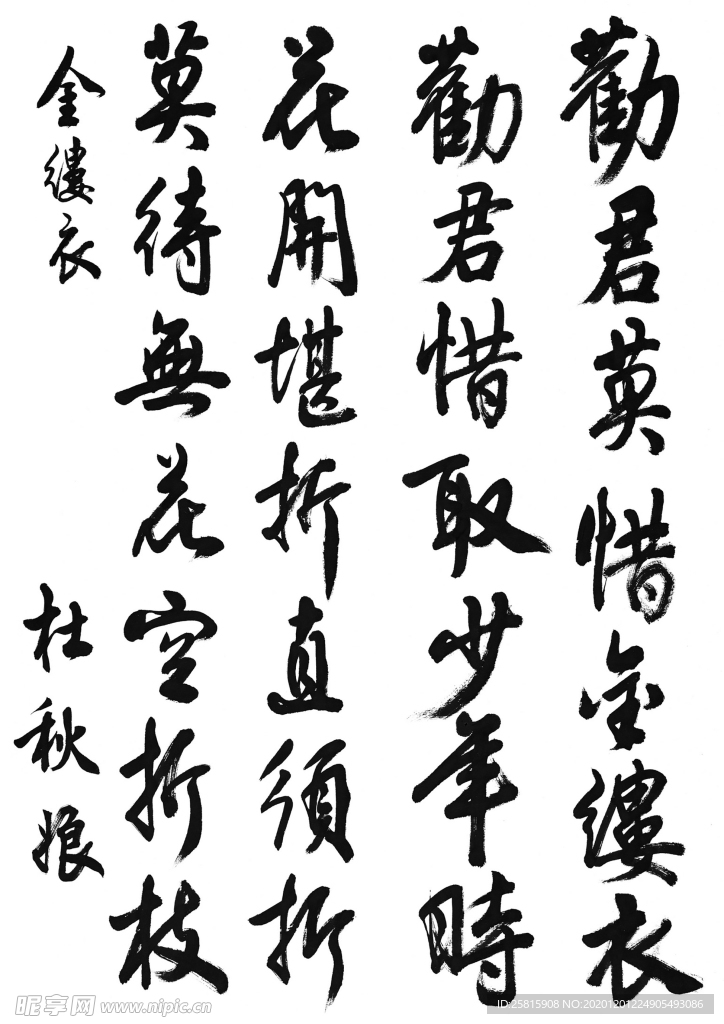 勸君莫惜金縷衣
勸君惜取少年時
花開堪折直須折
莫待無花空折枝
金縷衣
杜秋娘
昵享网 www.nipic.cn
ID:25815908 NO:20201201224905493086